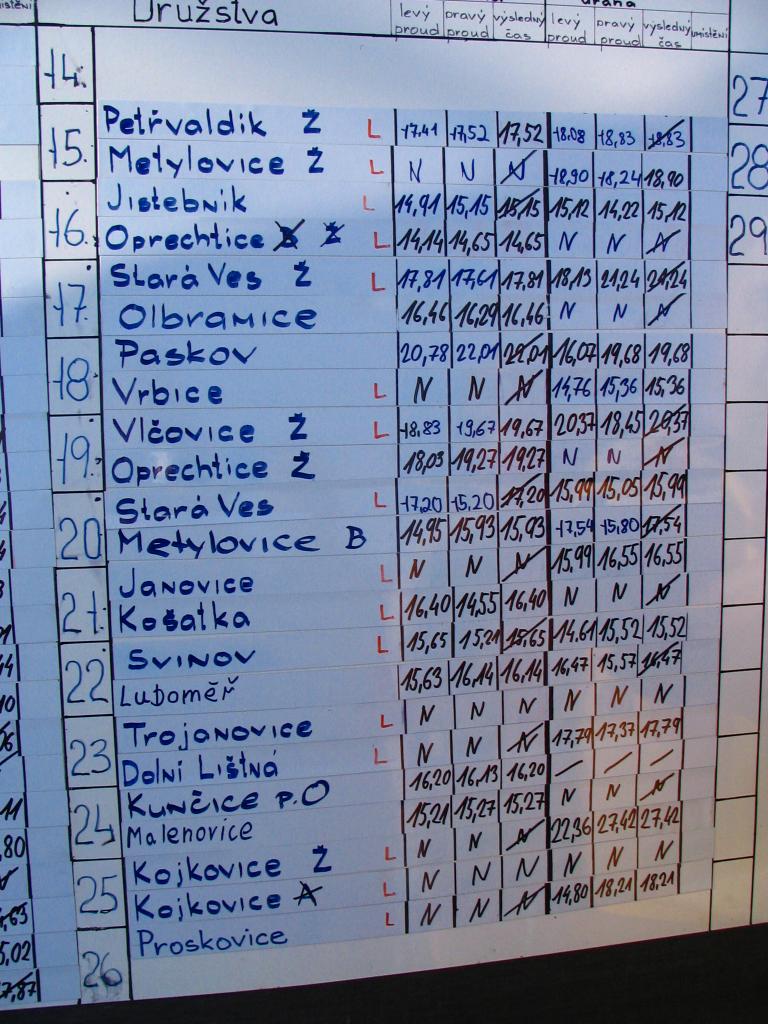 Družstva levý proud pravý proud výsledný čas levý proud pravý proud výsledný čas umístění
14.
15. Petřvaldik Ž L 17.41 17,52 17,52 18.08 18,83 18,83
Metylovice Ž L N N N 18,90 18,24 18,90
16. Jistebnik L 14,91 15,15 15,15 15,12 14,22 15,12
Oprechtice B Ž L 14,14 14,65 14,65 N N N
17. Stará Ves Ž L 17,81 17,61 17,81 18,13 21,24 21,24
Olbramice 16,46 16,29 16,46 N N N
18. Paskov 20,78 22,01 22,01 16,07 19,68 19,68
Vrbice L N N N 14,76 15,36 15,36
19. Vlčovice Ž L 18.83 19,67 19,67 20,37 18,45 20,37
Oprechtice Ž 18,03 19,27 19,27 N N N
20. Stará Ves L 17,20 15,20 17,20 15,99 15,05 15,99
Metylovice B 14,95 15,93 15,93 17,54 15,80 17,54
21. Janovice L N N N 15,99 16,55 16,55
Košatka L 16,40 14,55 16,40 N N N
22. Svinov L 15,65 15,21 15,65 14,61 15,52 15,52
Luboměř 15,63 16,14 16,14 16,47 15,57 16,47
23. Trojanovice L N N N N N N
Dolní Lištná L N N N 17,79 17,37 17,79
24. Kunčice p.O 16,20 16,13 16,20 / / /
Malenovice 15,21 15,27 15,27 N N N
25. Kojkovice Ž L N N N 22,36 27,42 27,42
Kojkovice A L N N N N N N
26. Proskovice L N N N 14,80 18,21 18,21
27
28
29